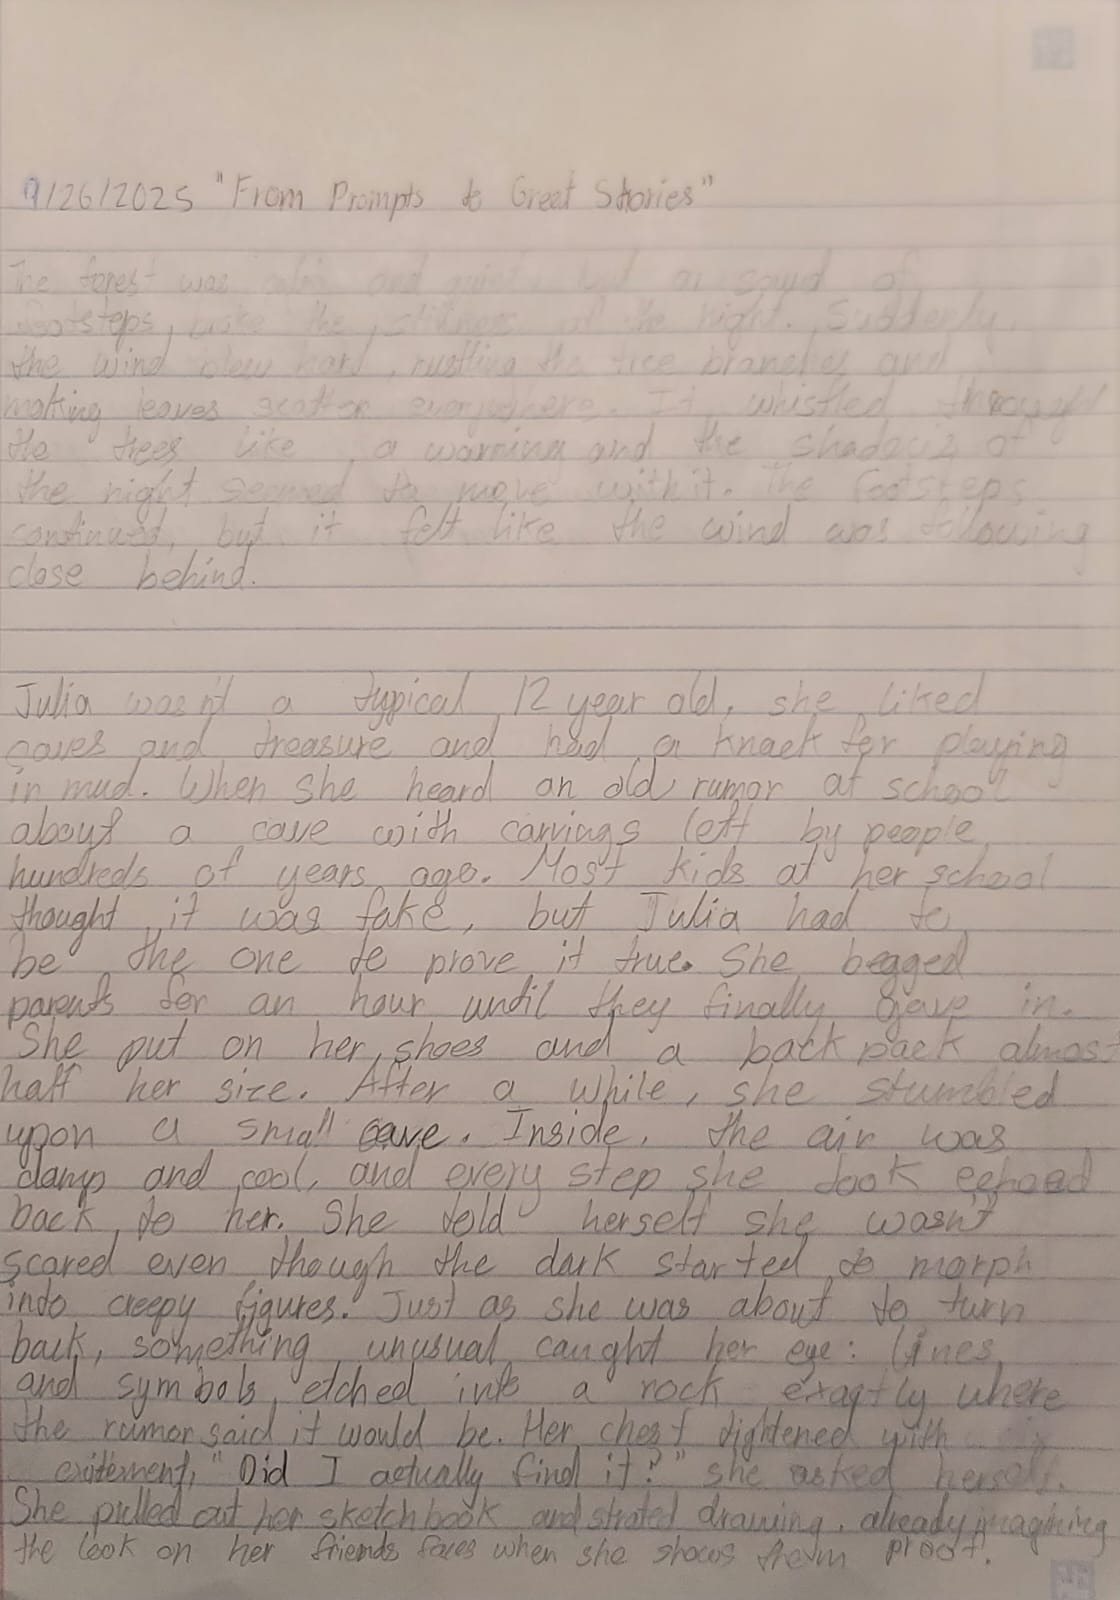 9/26/2025 "From Prompts to Great Stories"
The forest was calm and quiet, but a sound of
footsteps, broke the stillness of the night. Suddenly,
the wind blew hard, rustling the tree branches and
making leaves scatter everywhere. It whistled through
the trees like a warning and the shadows of
the night seemed to move with it. The footsteps
continued, but it felt like the wind was following
close behind.
Julia wasn't a typical 12 year old, she liked
caves and treasure and had a knack for playing
in mud. When she heard an old rumor at school
about a cave with carvings left by people
hundreds of years ago. Most kids at her school
thought it was fake, but Julia had to
be the one to prove it true. She begged
parents for an hour until they finally gave in.
She put on her shoes and a back pack almost
half her size. After a while, she stumbled
upon a small cave. Inside, the air was
damp and cool, and every step she took echoed
back to her. She told herself she wasn't
scared even though the dark started to morph
into creepy figures. Just as she was about to turn
back, something unusual caught her eye: lines
and symbols etched into a rock exactly where
the rumor said it would be. Her chest tightened with
exitement, "Did I actually find it?" she asked herself.
She pulled out her sketchbook and strated drawing, already imagining
the look on her friends faces when she shows them proof.